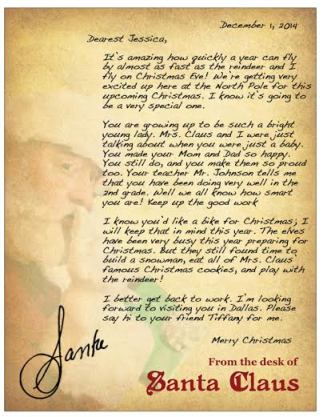 December 1, 2014
Dearest Jessica,
It's amazing how quickly a year can fly
by almost as fast as the reindeer and I
fly on Christmas Eve! We're getting very
excited up here at the North Pole for this
upcoming Christmas. I know it's going to
be a very special one.
You are growing up to be such a bright
young lady. Mrs. Claus and I were just
talking about when you were just a baby.
You made your Mom and Dad so happy.
You still do, and you make them so proud
too. Your teacher Mr. Johnson tells me
that you have been doing very well in the
2nd grade. Well we all know how smart
you are! Keep up the good work
I know you'd like a bike for Christmas; I
will keep that in mind this year. The elves
have been very busy this year preparing for
Christmas. But they still found time to
build a snowman, eat all of Mrs. Claus
famous Christmas cookies, and play with
the reindeer!
I better get back to work. I'm looking
forward to visiting you in Dallas. Please
say hi to your friend Tiffany for me.
Merry Christmas
Santa
From the desk of
Santa Claus